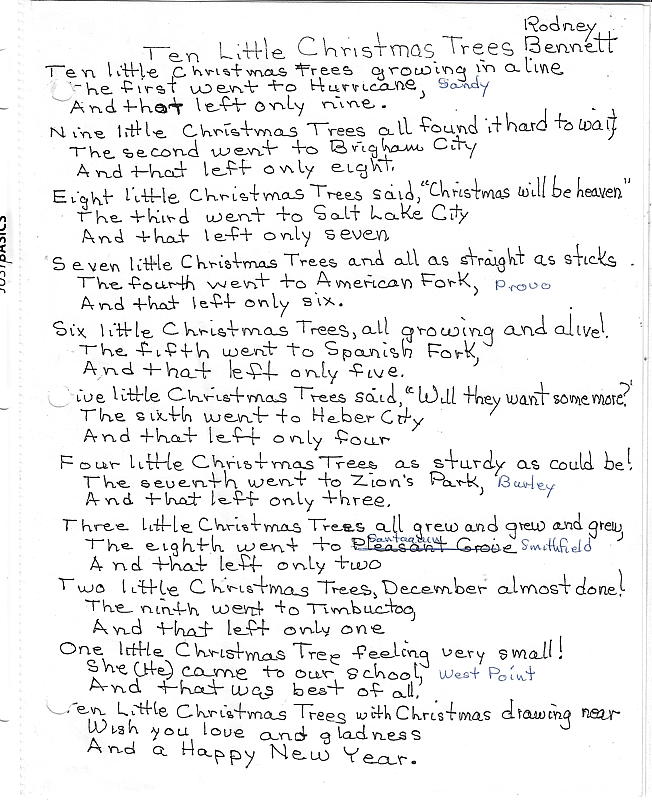 Rodney
Ten Little Christmas Trees Bennett
Ten little Christmas Trees growing in a line
The first went to Hurricane, Sandy
And that left only nine.
Nine little Christmas Trees all found it hard to wait
The second went to Brigham City
And that left only eight.
Eight little Christmas Trees said, "Christmas will be heaven"
The third went to Salt Lake City
And that left only seven
Seven little Christmas Trees and all as straight as sticks.
The fourth went to American Fork, Provo
And that left only six.
Six little Christmas Trees, all growing and alive!
The fifth went to Spanish Fork,
And that left only five.
Five little Christmas Trees said, "Will they want some more?"
The sixth went to Heber City
And that left only four
Four little Christmas Trees as sturdy as could be!
The seventh went to Zion's Park, Burley
And that left only three.
Three little Christmas Trees all grew and grew and grew,
Santaquin
The eighth went to Pleasant Grove Smithfield
And that left only two
Two little Christmas Trees, December almost done!
The ninth went to Timbuctoo,
And that left only one
One little Christmas Tree feeling very small!
She (He) came to our school, West Point
And that was best of all.
Ten Little Christmas Trees with Christmas drawing near
Wish you love and gladness
And a Happy New Year.
JUST BASICS